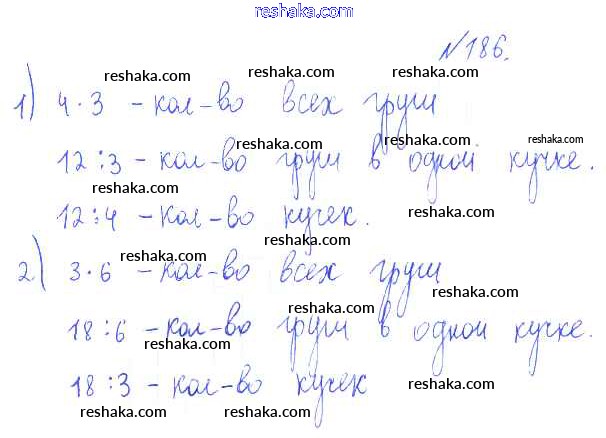 reshaka.com
№186.
reshaka.com reshaka.com reshaka.com
1) 4·3 - кол-во всех груш
reshaka.com reshaka.com reshaka.com
12:3 - кол-во груш в одной кучке.
reshaka.com reshaka.com reshaka.com
12:4 - кол-во кучек.
reshaka.com reshaka.com reshaka.com
2) 3·6 - кол-во всех груш
reshaka.com reshaka.com
18:6 - кол-во груш в одной кучке.
reshaka.com reshaka.com reshaka.com
18:3 - кол-во кучек
reshaka.com reshaka.com reshaka.com